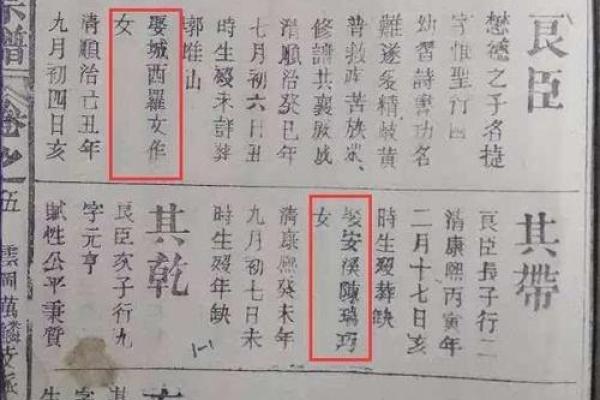 良臣
懋德之子名捷
字惟聖行四
幼習詩書功名
難遂爰精岐黃
普救疾苦族眾
修譜共襄厥成
清順治癸巳年
七月初六日丑
時生歿未詳葬
郭堆山
娶城西羅女作
女
清順治己丑年
九月初四日亥
其帶
良臣長子行二
清康熙丙寅年
二月十七日亥
時生歿葬缺
娶安溪陳瑞丐
女
清康熙癸未年
九月初七日未
時生歿年缺
其乾
良臣次子行九
字元亨
賦性公平秉質
宗譜 卷之五 雲洞萬麟支派